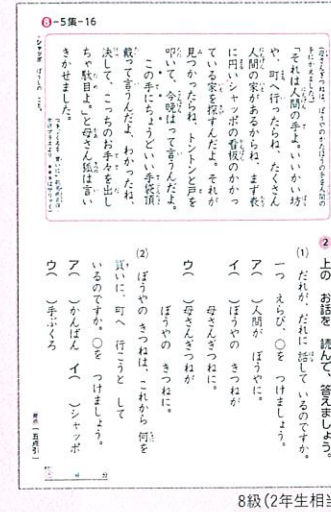 8-5集-16
2 上の お話を 読んで、答えましょう。
(1) だれが、だれに 話して いるのですか。
一つ えらび、○を つけましょう。
ア( )人間が ぼうやに。
イ( )ぼうやの きつねが
母さんぎつねに。
ウ( )母さんぎつねが
ぼうやの きつねに。
(2) ぼうやの きつねは、これから 何を
買いに、町へ 行こうと して
いるのですか。○を つけましょう。
ア( )かんばん イ( )シャッポ
ウ( )手ぶくろ
「それは人間の手よ。いいかい坊
や、町へ行ったらね、たくさん
人間の家があるからね、まず表
に円いシャッポの看板のかかっ
ている家を探すんだよ。それが
見つかったらね、トントンと戸を
叩いて、今晩はって言うんだよ。
この手にちょうどいい手袋頂
戴って言うんだよ、わかったね、
決して、こっちのお手々を出し
ちゃ駄目よ。」と母さん狐は言い
きかせました。
8級(2年生相当